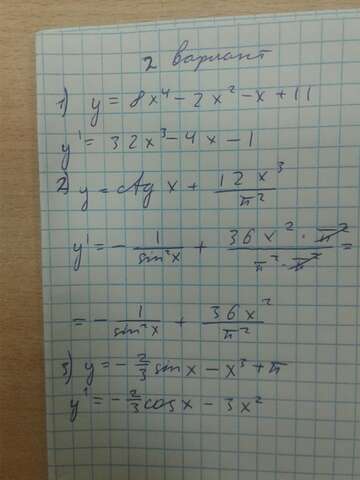 2 вариант
1) y = 8x⁴ - 2x² - x + 11
y' = 32x³ - 4x - 1
2) y = ctg x + 12x³/π²
y' = - 1/sin²x + 36x² · π²/π² · π² =
= - 1/sin²x + 36x²/π²
3) y = - 2/3 sin x - x³ + π
y' = - 2/3 cos x - 3x²